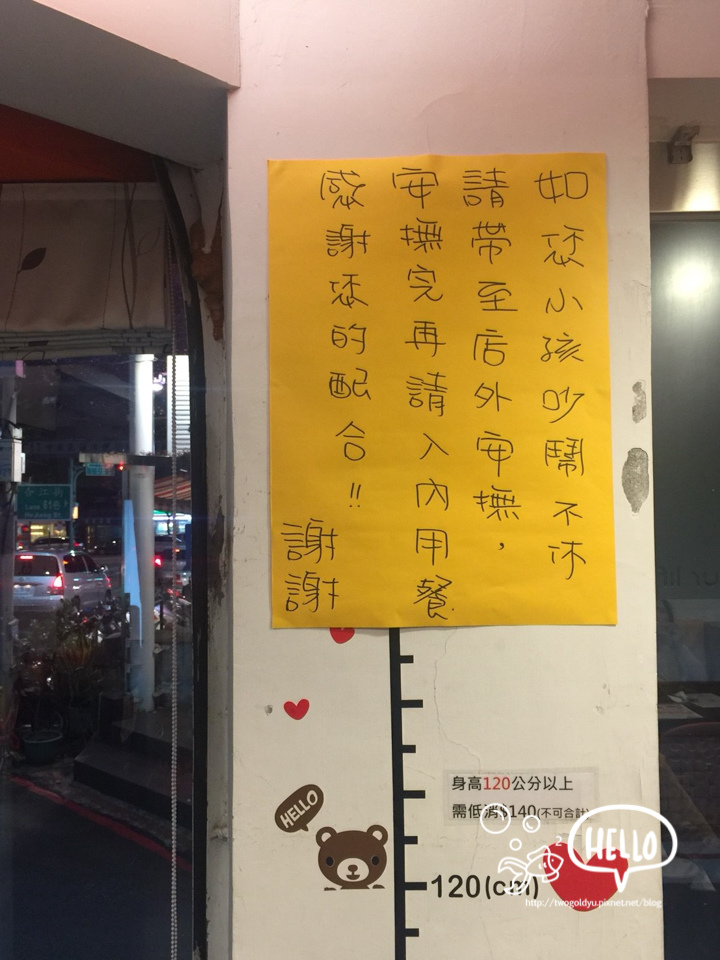 如您小孩吵鬧不休
請帶至店外安撫，
安撫完再請入內用餐.
感謝您的配合!!
謝謝
HELLO
身高120公分以上
需低消$140(不可合計)
120(cm)
HELLO
http://twogoldyu.pixnet.net/blog
合江街